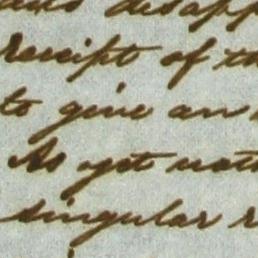 and disapp
receipt of th
to give an
As yet noth
singular r